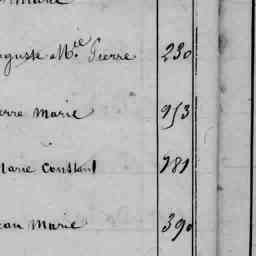 Marie
uguste M.ie Pierre 230
erre Marie 953
Marie Constant 981
ean Marie 390